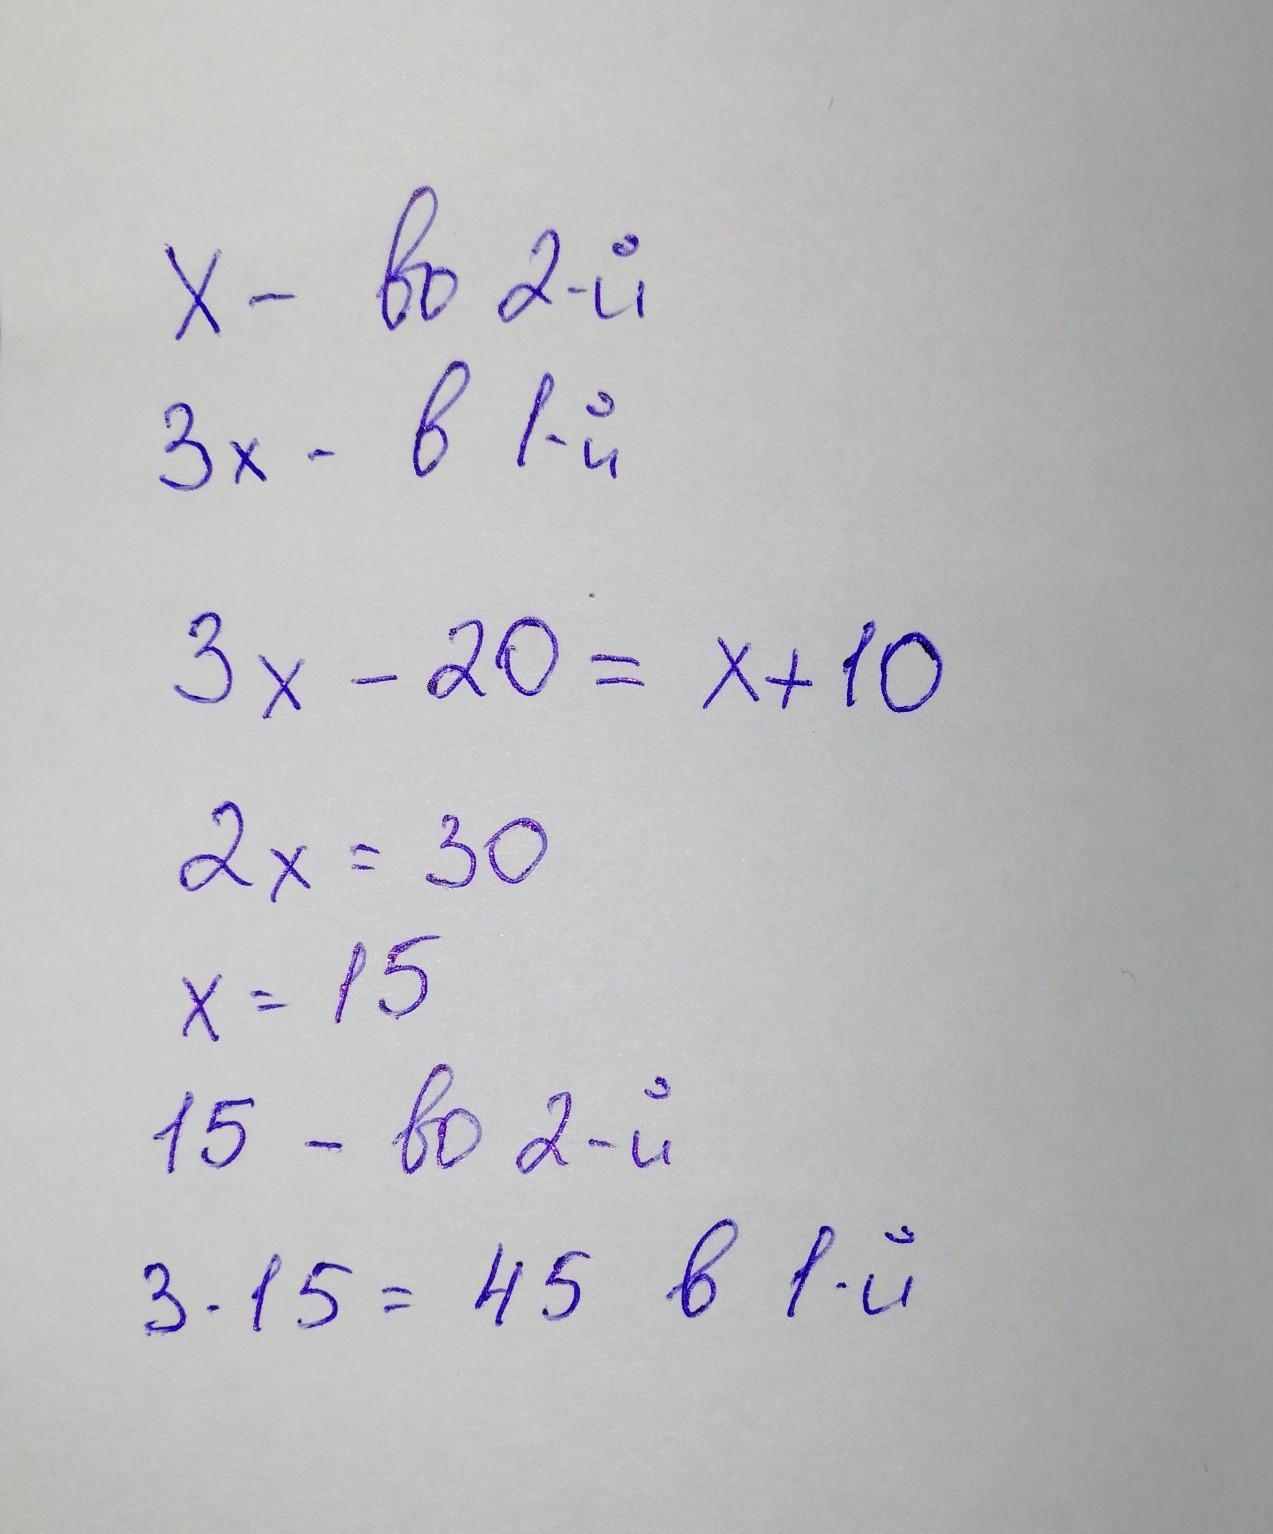 x - во 2-й
3x - в 1-й
3x - 20 = x + 10
2x = 30
x = 15
15 - во 2-й
3 · 15 = 45 в 1-й